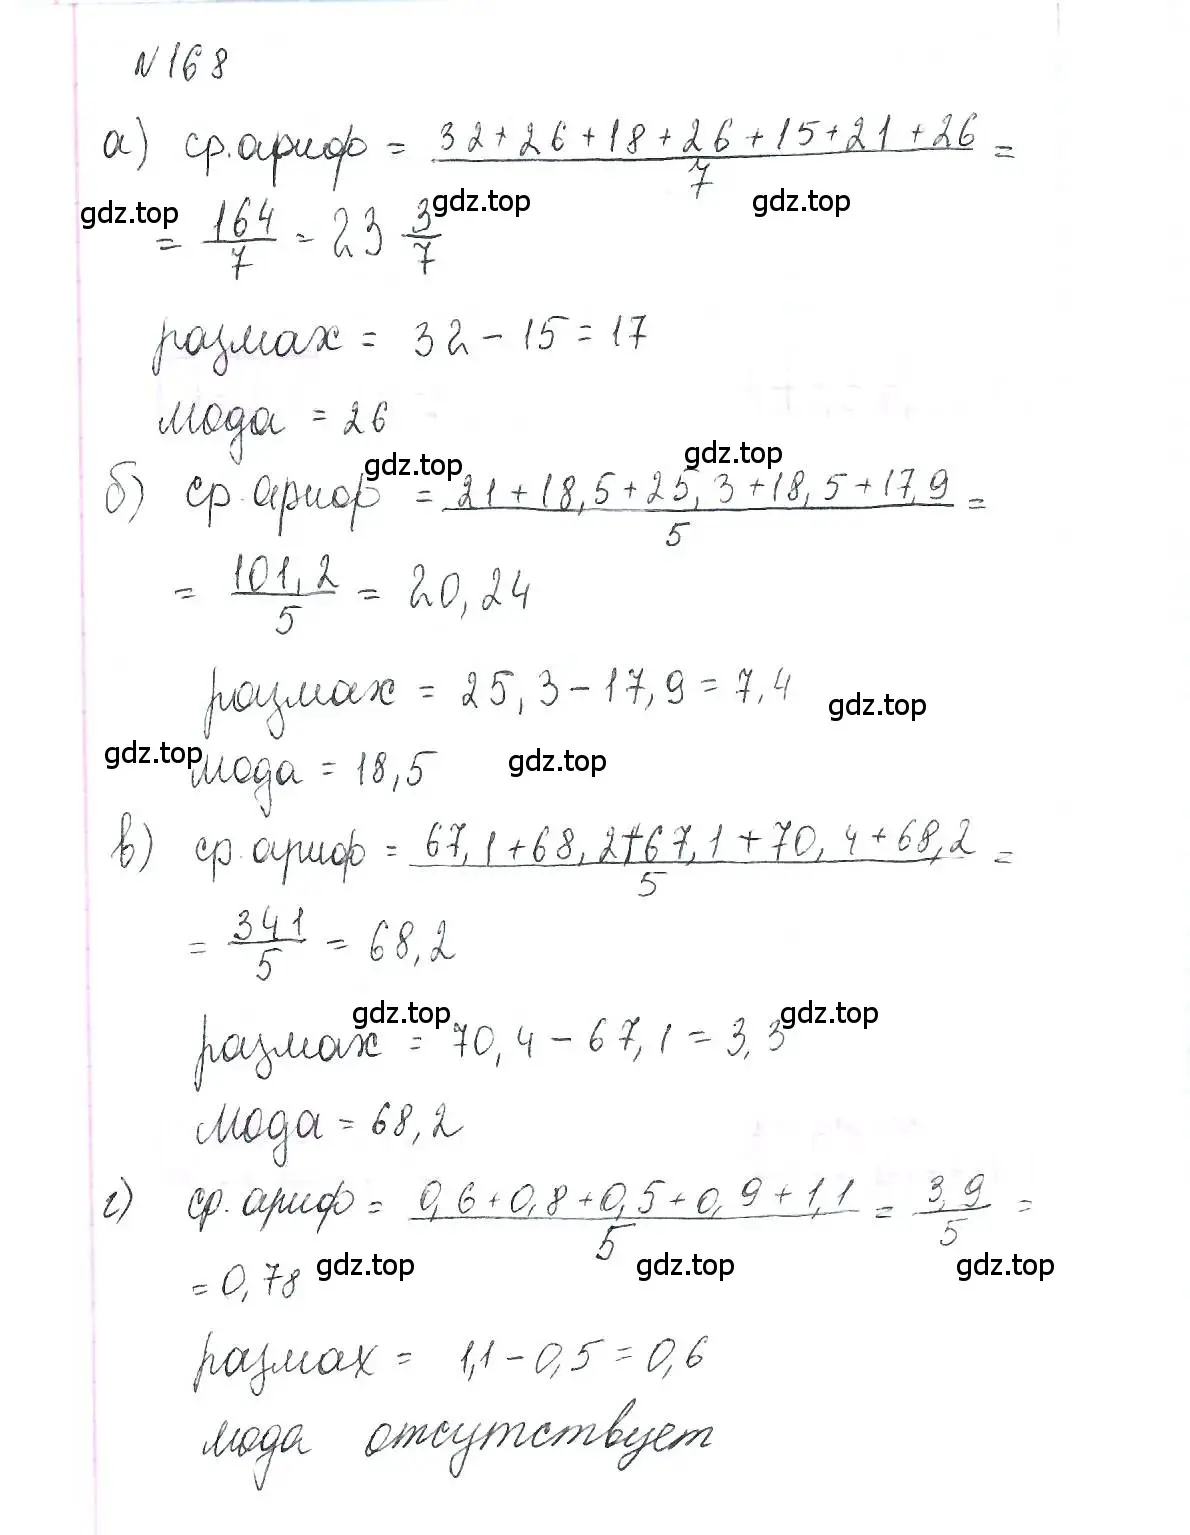 N168
а) ср. ариф = 32+26+18+26+15+21+26 / 7 =
gdz.top gdz.top gdz.top
= 164/7 = 23 3/7
размах = 32 - 15 = 17
мода = 26
gdz.top gdz.top
б) ср. ариф = 21+18,5+25,3+18,5+17,9 / 5 =
= 101,2 / 5 = 20,24
размах = 25,3 - 17,9 = 7,4
gdz.top
gdz.top gdz.top
мода = 18,5
в) ср. ариф = 67,1+68,2+67,1+70,4+68,2 / 5 =
= 341 / 5 = 68,2
gdz.top gdz.top
размах = 70,4 - 67,1 = 3,3
мода = 68,2
г) ср. ариф = 0,6+0,8+0,5+0,9+1,1 / 5 = 3,9 / 5 =
= 0,78
gdz.top gdz.top gdz.top
размах = 1,1 - 0,5 = 0,6
мода отсутствует